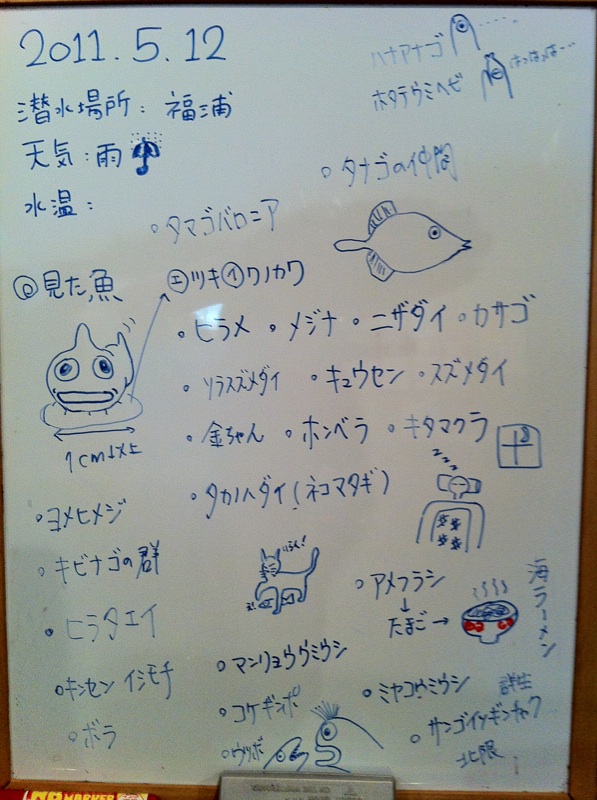 2011.5.12
ハナアナゴ
ホタテウミヘビ
潜水場所: 福浦
天気:雨
水温:
・タナゴの仲間
・タマゴバロニア
◎見た魚
㋓ツキ㋑ワノカワ
・ヒラメ ・メジナ ・ニザダイ ・カサゴ
・ソラスズメダイ ・キュウセン ・スズメダイ
・金ちゃん ・ホンベラ ・キタマクラ
1cm以上
・タカノハダイ(ネコマタギ)
zzz
・ヨメヒメジ
・キビナゴの群
・ヒラタエイ
・キンセンイシモチ
・ボラ
いらん!
・アメフラシ
↓
たまご→
海ラーメン
・マンリョウウミウシ
・コケギンポ
・ウツボ
・ミヤコウミウシ
群生
・サンゴイソギンチャク
北限